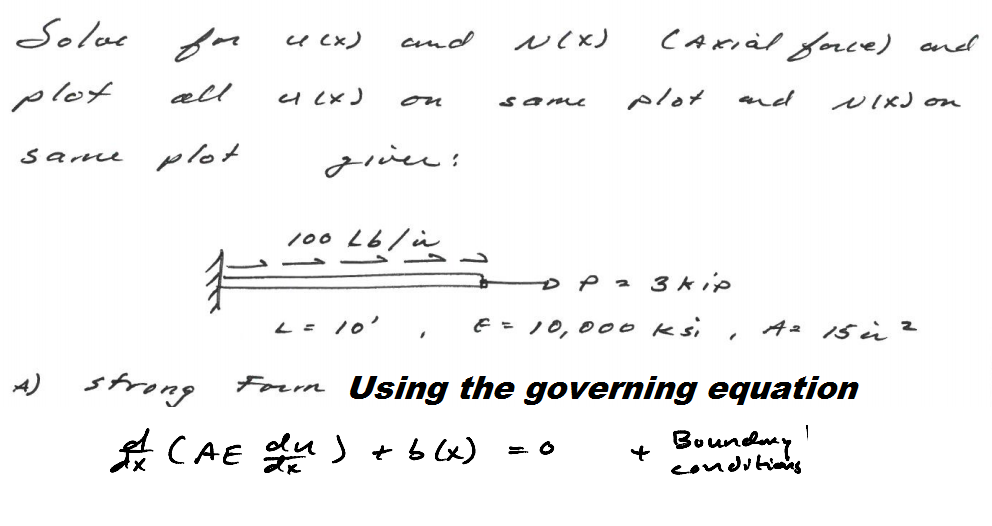 Solve for u(x) and N(x) (Axial force) and
plot all u(x) on same plot and N(x) on
same plot given:
100 Lb/in
P = 3 kip
L = 10' , E = 10,000 ksi , A = 15 in²
A) strong Form Using the governing equation
d/dx (AE du/dx) + b(x) = 0 + Boundary
conditions